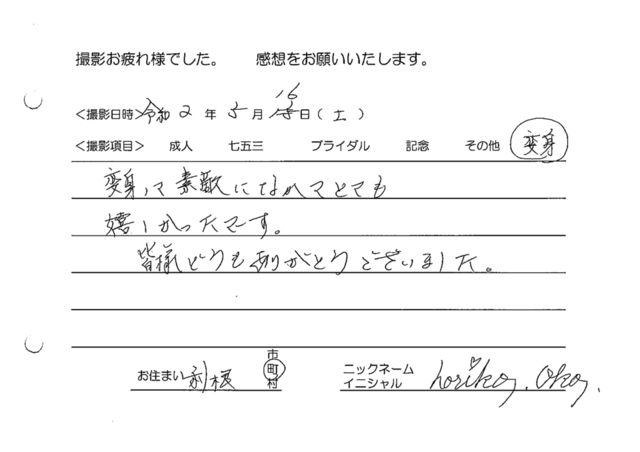 撮影お疲れ様でした。 感想をお願いいたします。
<撮影日時>令和2年5月16日(土)
<撮影項目> 成人 七五三 ブライダル 記念 その他 変身
変身して素敵になれてとても
嬉しかったです。
皆様どうもありがとうございました。
お住まい 利根 市町村
ニックネーム
イニシャル noriko. Oka.